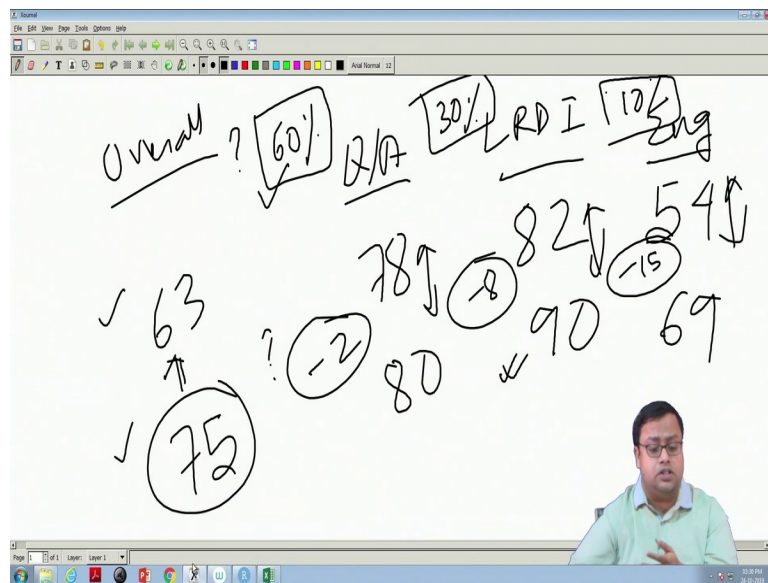 Xournal
File Edit View Page Tools Options Help
Arial Normal 12
60% 30% 10%
Overall ? Q/A RDI Eng
78 82 54
63 ? -2 -8 -15
80 90 69
75
Page 1 of 1 Layer: Layer 1
03:30 PM